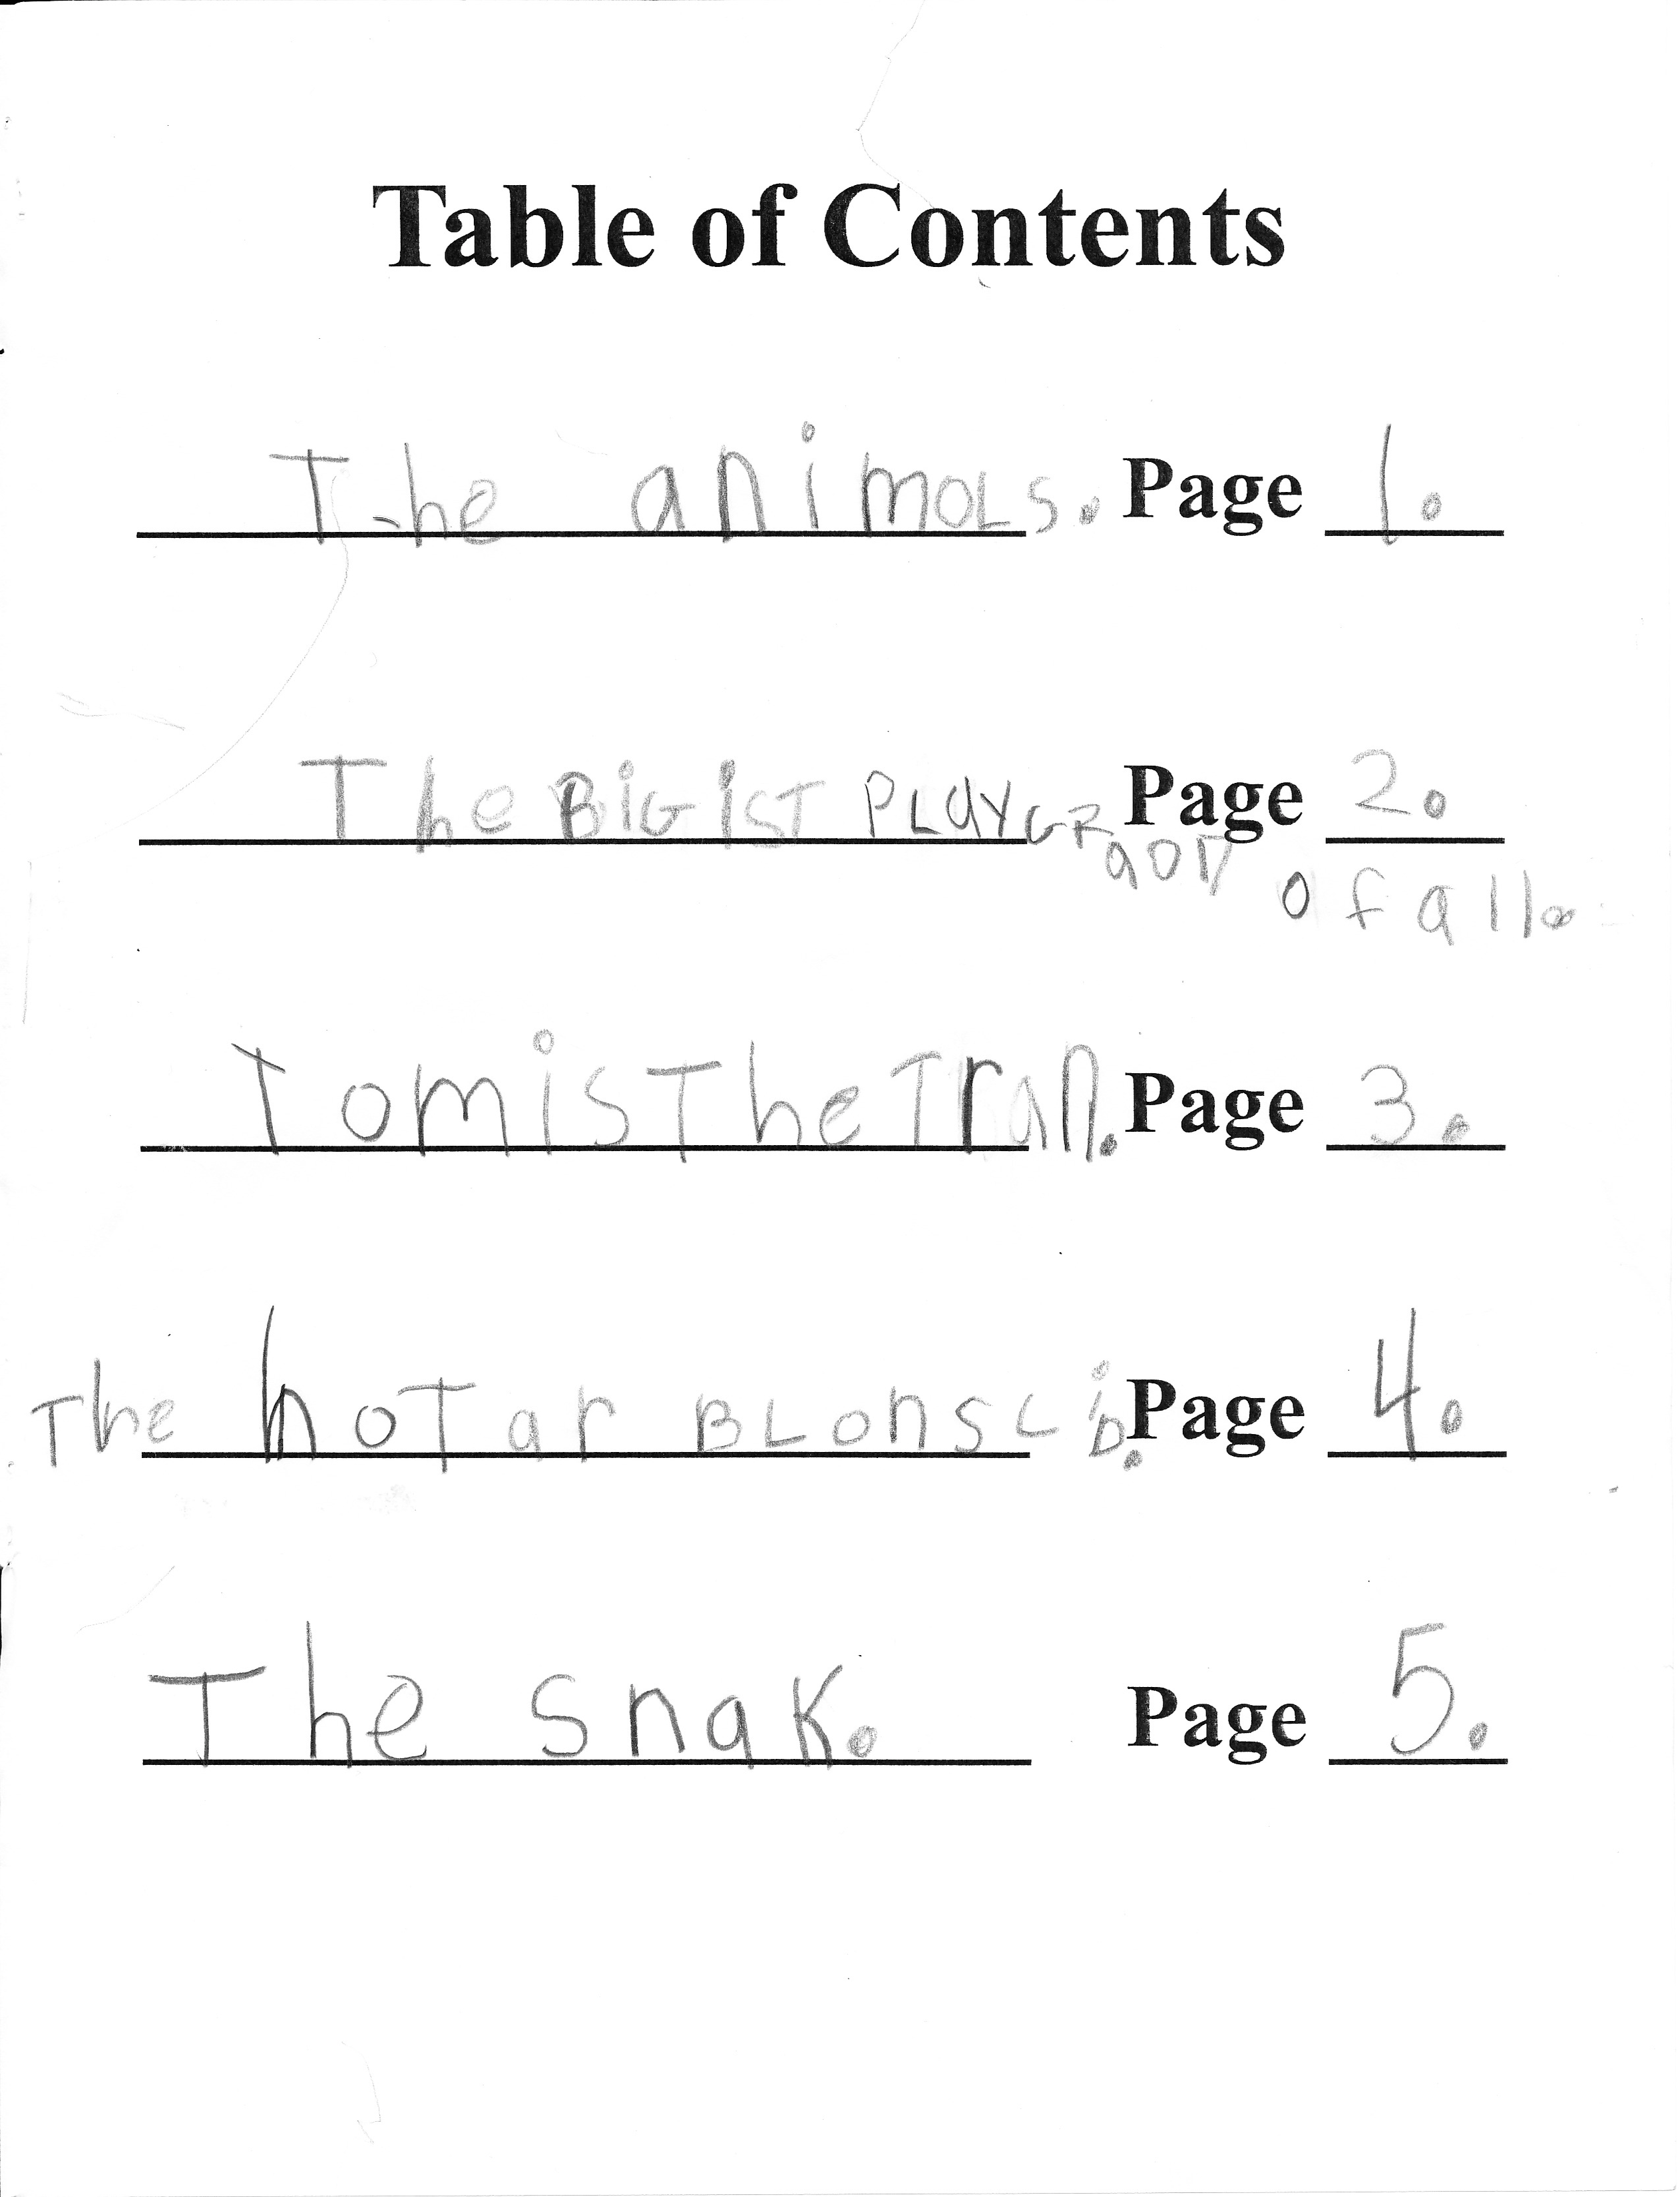 Table of Contents
The animoLs. Page 1.
The BiGisT PLayGRaoD of all. Page 2.
TomisTheTran. Page 3.
The hoTar BLonscib. Page 4.
The snak. Page 5.